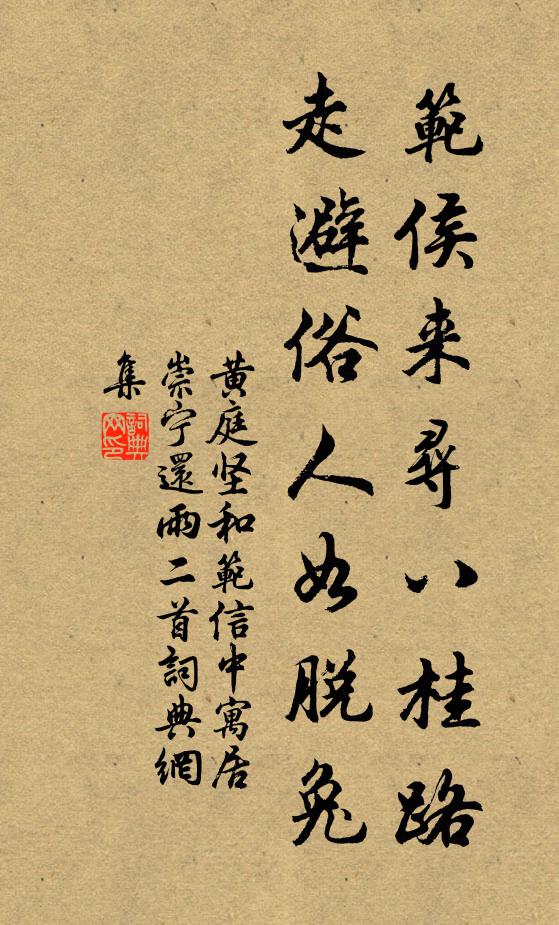 範侯来尋八桂路
走避俗人如脱兔
黄庭坚和範信中寓居
崇宁還雨二首詞典網
集
詞典網印